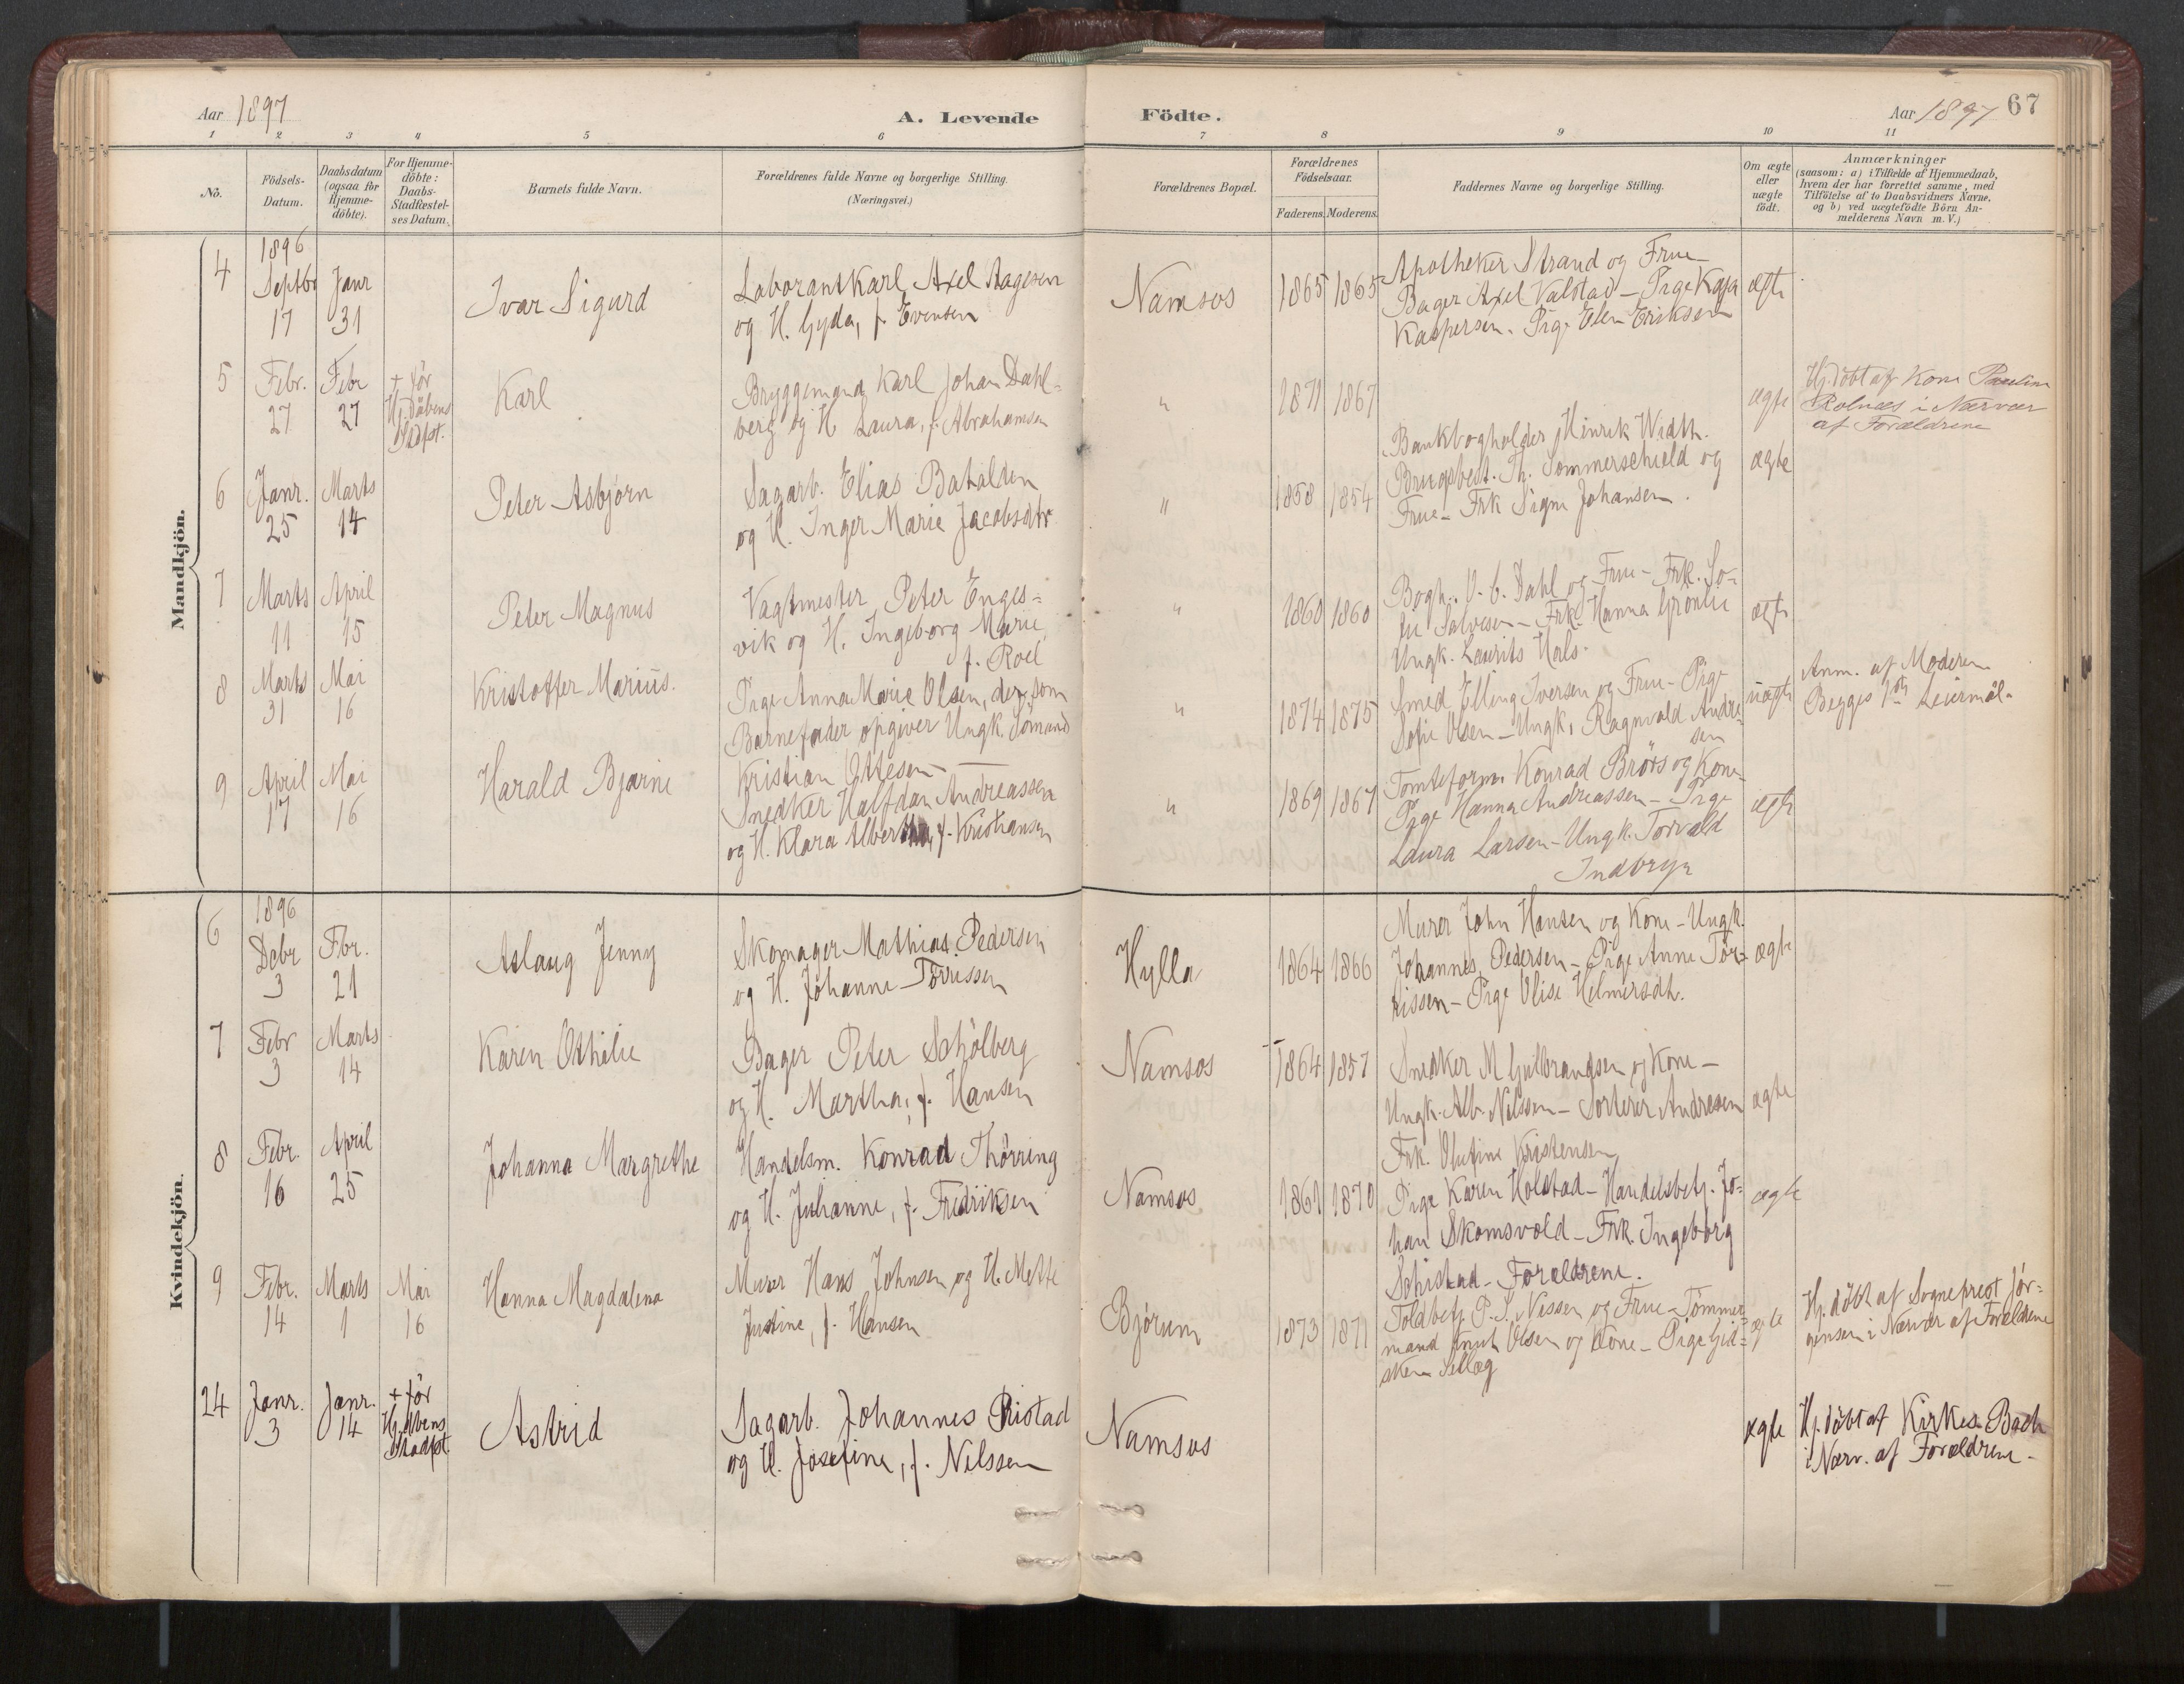 Aar 1897
A. Levende Födte.
Aar 1897 67
1 2 3 4 5 6 7 8 9 10 11
Nò.
Födsels-Datum.
Daabsdatum (ogsaa for Hjemme-döbte).
For Hjemme-döbte: Daabs-Stadfæstel-ses Datum.
Barnets fulde Navn.
Forældrenes fulde Navne og borgerlige Stilling.
(Næringsvei.)
Forældrenes Bopæl.
Forældrenes Födselsaar.
Faderens. Moderens.
Faddernes Navne og borgerlige Stilling.
Om ægte eller uægte födt.
Anmærkninger
(saasom: a) i Tilfælde af Hjemmedaab,
hvem der har forrettet samme, med
Tilföielse af to Daabsvidners Navne,
og b) ved uægtefödte Börn An-
melderens Navn m. V.)
Mandkjön.
4
1896
Septbr 17
Janr 31
Ivar Sigurd
Laborant Karl Axel Aagesen
og H. Gyda, f. Evensen
Namsos
1865 1865
Apotheker Strand og Frue
Bager Axel Valstad - Pige Kaja
Kaspersen. Pige Elen Eriksen
ægte
5
Febr. 27
Febr 27
+ før
Hj.dåbens
Stadfst.
Karl
Bryggemand Karl Johan Dahl-
berg og H. Laura, f. Abrahamsen
"
1871 1867
ægte
Hj. döbt af Kone Pauline
Rolnæs i Nærvær
af Forældrene
6
Janr. 25
Marts 14
Peter Asbjørn
Sagarb. Elias Batalden
og H. Inger Marie Jacobsdtr
"
1858 1854
Bankbogholder Hinrik Width.
Brugsbest. Th. Sommerschield og
Frue - Frk Signe Johansen.
ægte
7
Marts 11
April 15
Peter Magnus
Vagtmester Peter Enges-
vik og H. Ingeborg Marie
f. Roel
"
1860 1860
Bogh. O. C. Dahl og Frue - Frk. So-
fie Salvesen - Frk. Hanna Grønlie
Ungk. Laurits Hals.
ægte
8
Marts 31
Mai 16
Kristoffer Marius.
Pige Anna Marie Olsen, der som
Barnefader opgiver Ungk. Sömand
Kristian Ottesen -
"
1874 1875
Smed Elling Iversen og Frue - Pige
Sofie Olsen - Ungk. Ragnvald Andre-
sen
uægte
Anm. af Moderen
Begges 1ste Leiermål.
9
April 17
Mai 16
Harald Bjarne
Snedker Halfdan Andreassen
og H. Klara Albertha, f. Kristiansen
"
1869 1867
Tomteform. Konrad Brörs og Kone
Pige Hanna Andreassen - Pige
Laura Larsen - Ungk. Torvald
Indbryn
ægte
Kvindekjön.
6
1896
Debr 3
Fbr. 21
Aslaug Jenny
Skomager Mathias Pedersen
og H. Johanne Törrissen
Hylla
1864 1866
Murer John Hansen og Kone - Ungk.
Johannes Pedersen - Pige Anne Tör-
rissen - Pige Olise Helmersdtr.
ægte
7
Febr 3
Marts 14
Karen Othilie
Bager Peter Schölberg
og H. Martha, f. Hansen
Namsos
1864 1857
Snedker M Gulbrandsen og Kone -
Ungk. Alb. Nilssen - Sorterer Andresen
Frk. Olufine Kristensen
ægte
8
Febr. 16
April 25
Johanna Margrethe
Handelsm. Konrad Thørring
og H. Julianne, f. Fredriksen
Namsos
1861 1870
Pige Karen Holstad - Handelsbetj. Jo-
han Skomsvold - Frk. Ingeborg
Schistad - Forældrene.
ægte
9
Febr. 14
Marts 1
Mai 16
Hanna Magdalena
Murer Hans Johnsen og H. Mette
Justine, f. Hansen
Bjørum
1873 1871
Toldbetj. P. S. Nissen og Frue - Tömmer
mand Knut Olsen og Kone - Pige Gid-
sken Sellæg
ægte
Hj. döbt af Sogneprest Jör-
gensen i Nærvær af Forældrene
24
Janr. 3
Janr. 14
+ før
Hj.dbens
Stadfst.
Astrid
Sagarb. Johannes Ristad
og H. Josefine, f. Nilssen
Namsos
ægte
Hj. döbt af Kirkes. Bach
i Nærv. af Forældrene.